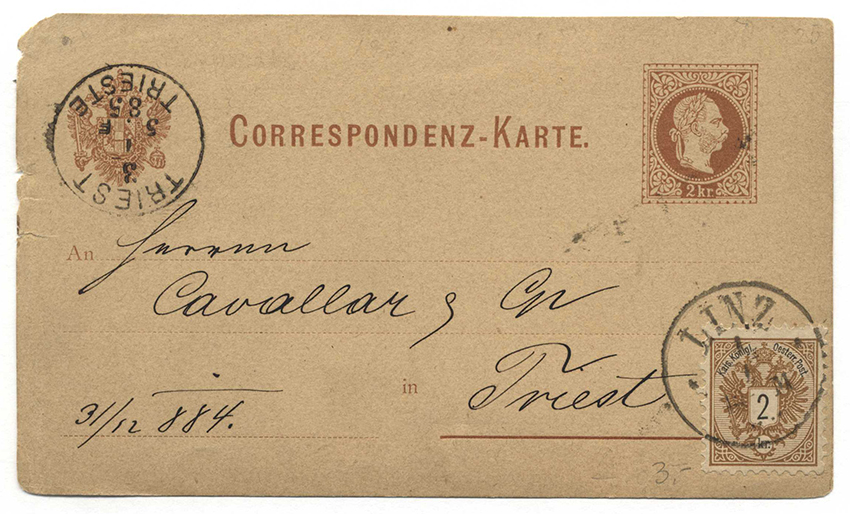 TRIEST
3
1
5 E
85
TRIESTE
CORRESPONDENZ-KARTE.
2 kr.
An Herren
Cavallar & Cp
LINZ
1
1
Kais. Königl. Oesterr. Post.
2.
kr.
in Triest
31/12 884.
3.-